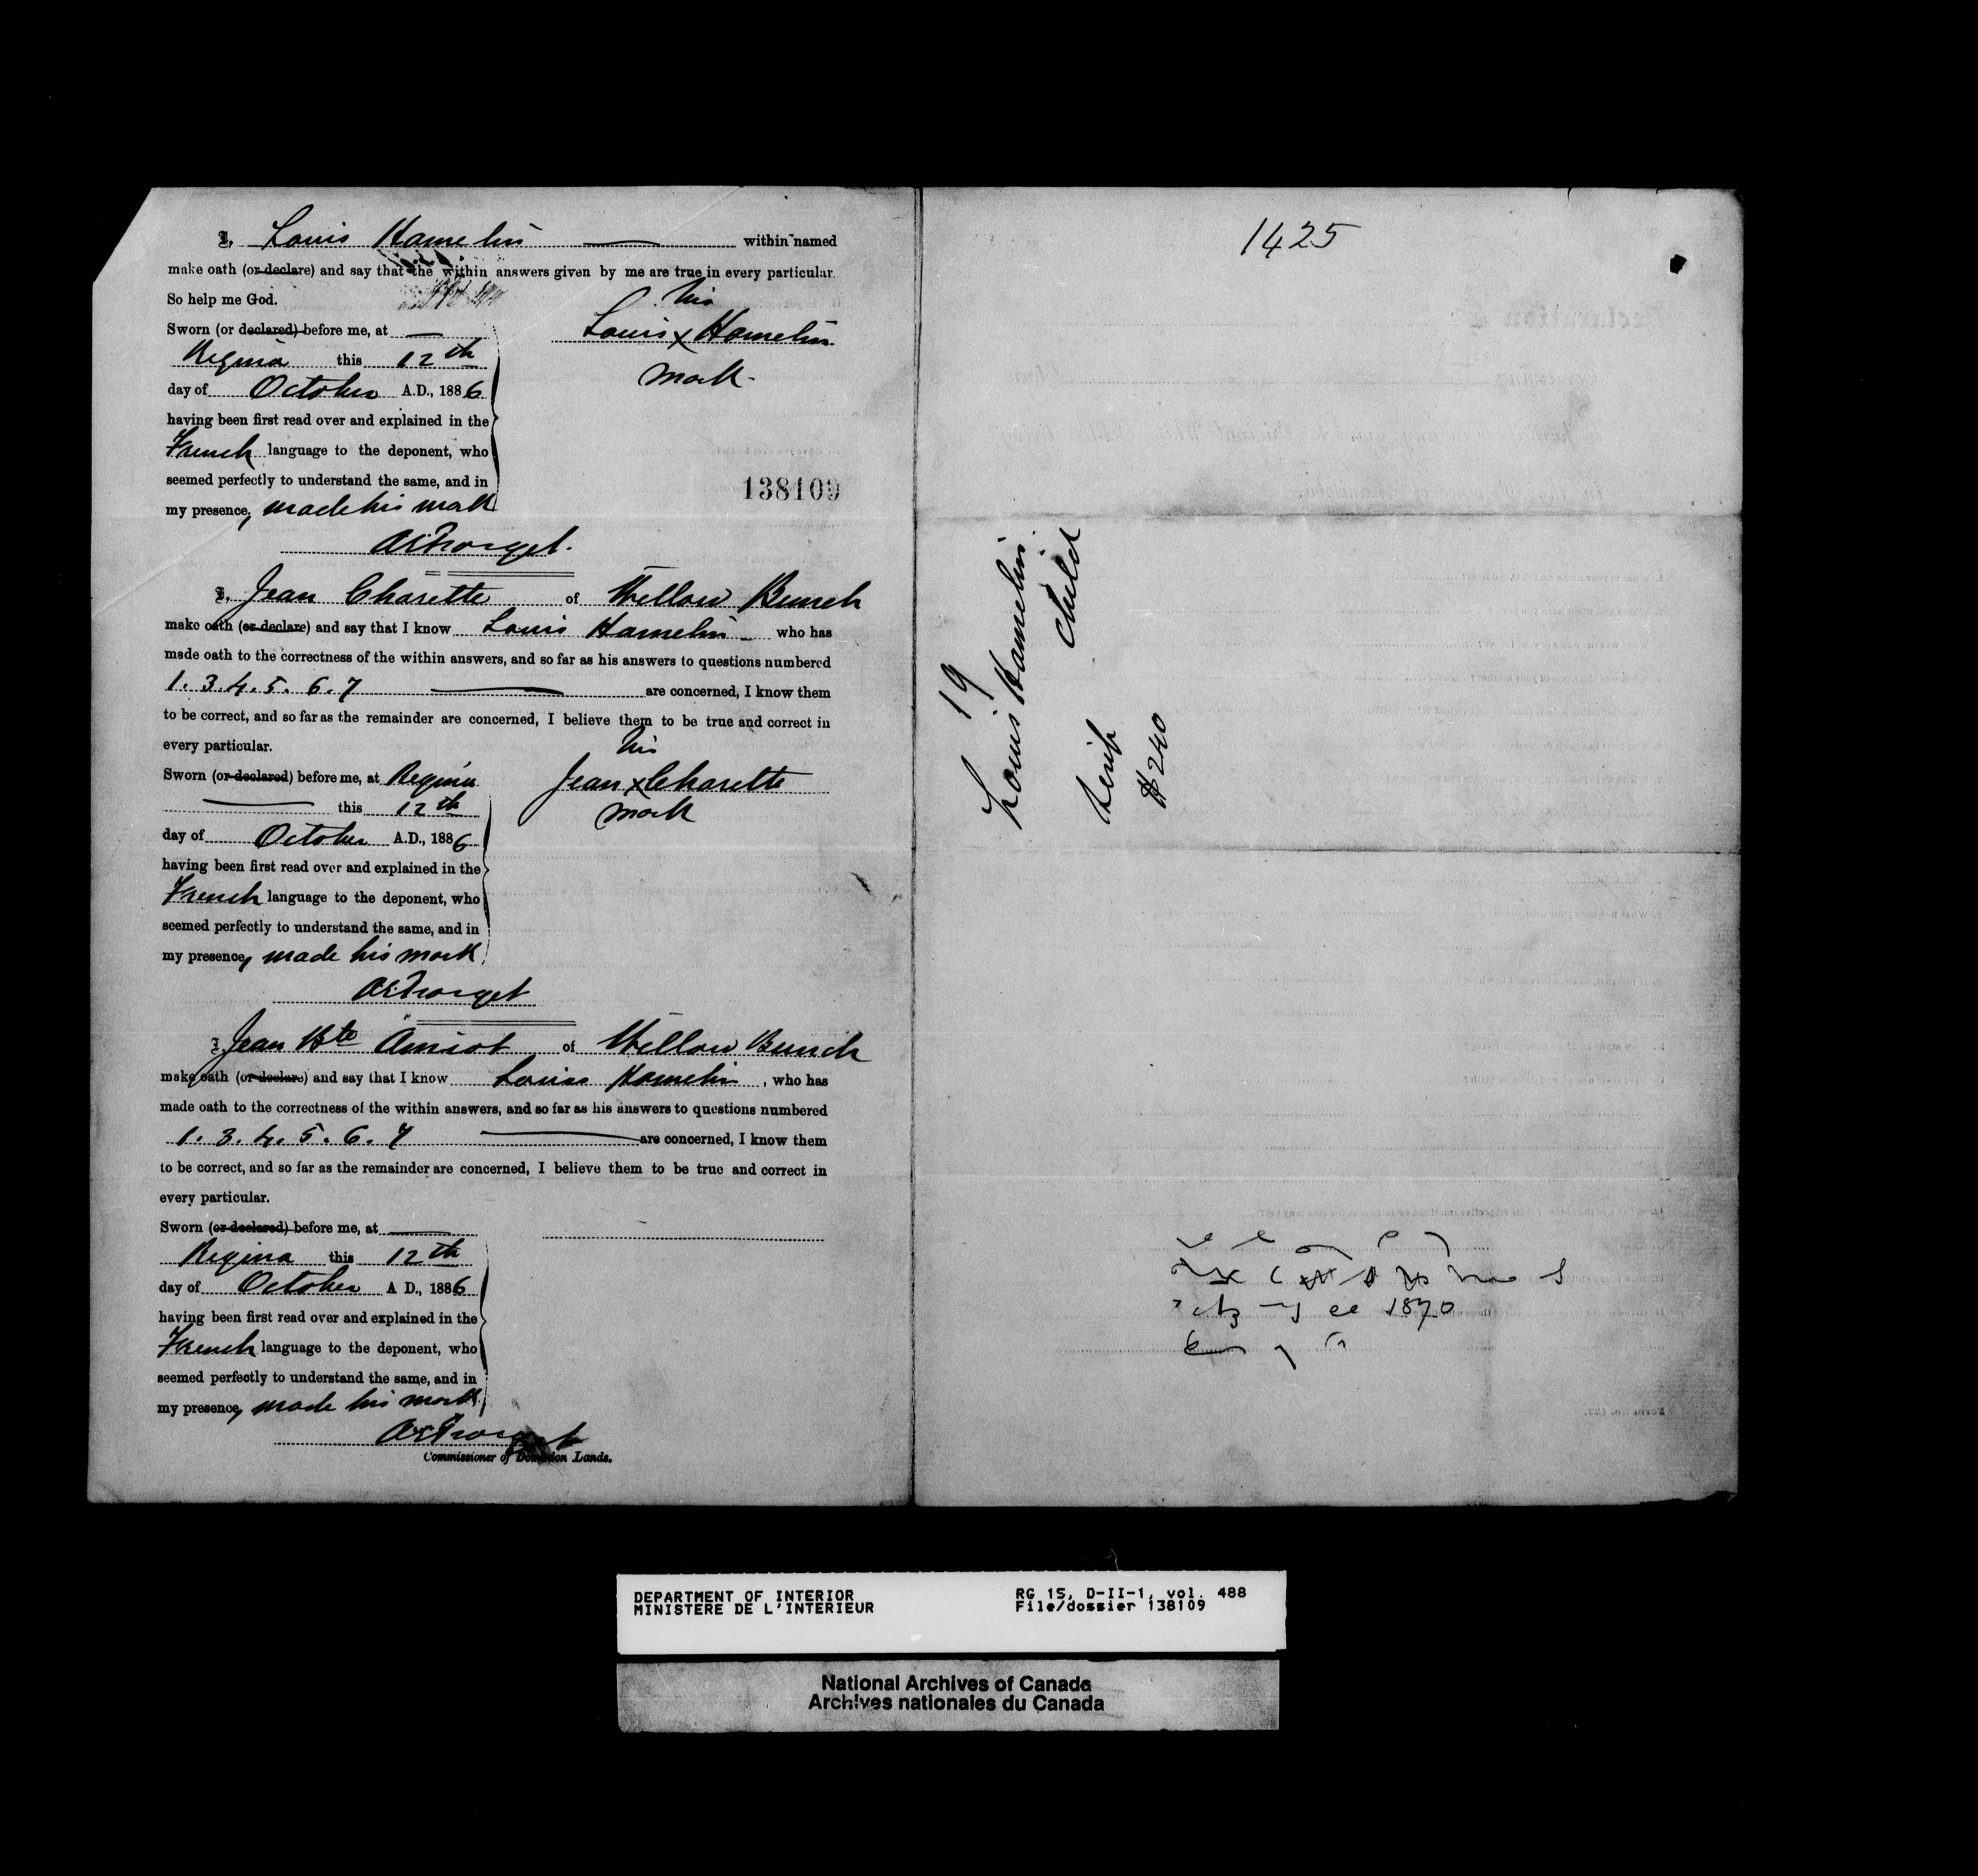 I, Louis Hamelin within named
make oath (or declare) and say that the within answers given by me are true in every particular.
So help me God.
his
Louis x Hamelin
mark
Sworn (or declared) before me, at
Regina this 12th
day of October A.D., 1886
having been first read over and explained in the
French language to the deponent, who
seemed perfectly to understand the same, and in
my presence, made his mark
138109
A E Forget
I, Jean Charette of Willow Bunch
make oath (or declare) and say that I know Louis Hamelin who has
made oath to the correctness of the within answers, and so far as his answers to questions numbered
1. 3. 4. 5. 6. 7 are concerned, I know them
to be correct, and so far as the remainder are concerned, I believe them to be true and correct in
every particular.
his
Jean x Charette
mark
Sworn (or declared) before me, at Regina
this 12th
day of October A.D., 1886
having been first read over and explained in the
French language to the deponent, who
seemed perfectly to understand the same, and in
my presence, made his mark
A E Forget
I, Jean Bte Amiot of Willow Bunch
make oath (or declare) and say that I know Louis Hamelin, who has
made oath to the correctness of the within answers, and so far as his answers to questions numbered
1. 3. 4. 5. 6. 7 are concerned, I know them
to be correct, and so far as the remainder are concerned, I believe them to be true and correct in
every particular.
Sworn (or declared) before me, at
Regina this 12th
day of October A D., 1886
having been first read over and explained in the
French language to the deponent, who
seemed perfectly to understand the same, and in
my presence, made his mark
A E Forget
Commissioner of Dominion Lands.
1425
19
Louis Hamelin
Child
Scrip
$240
1870
DEPARTMENT OF INTERIOR
MINISTERE DE L'INTERIEUR
RG 15, D-II-1, vol. 488
File/dossier 138109
National Archives of Canada
Archives nationales du Canada